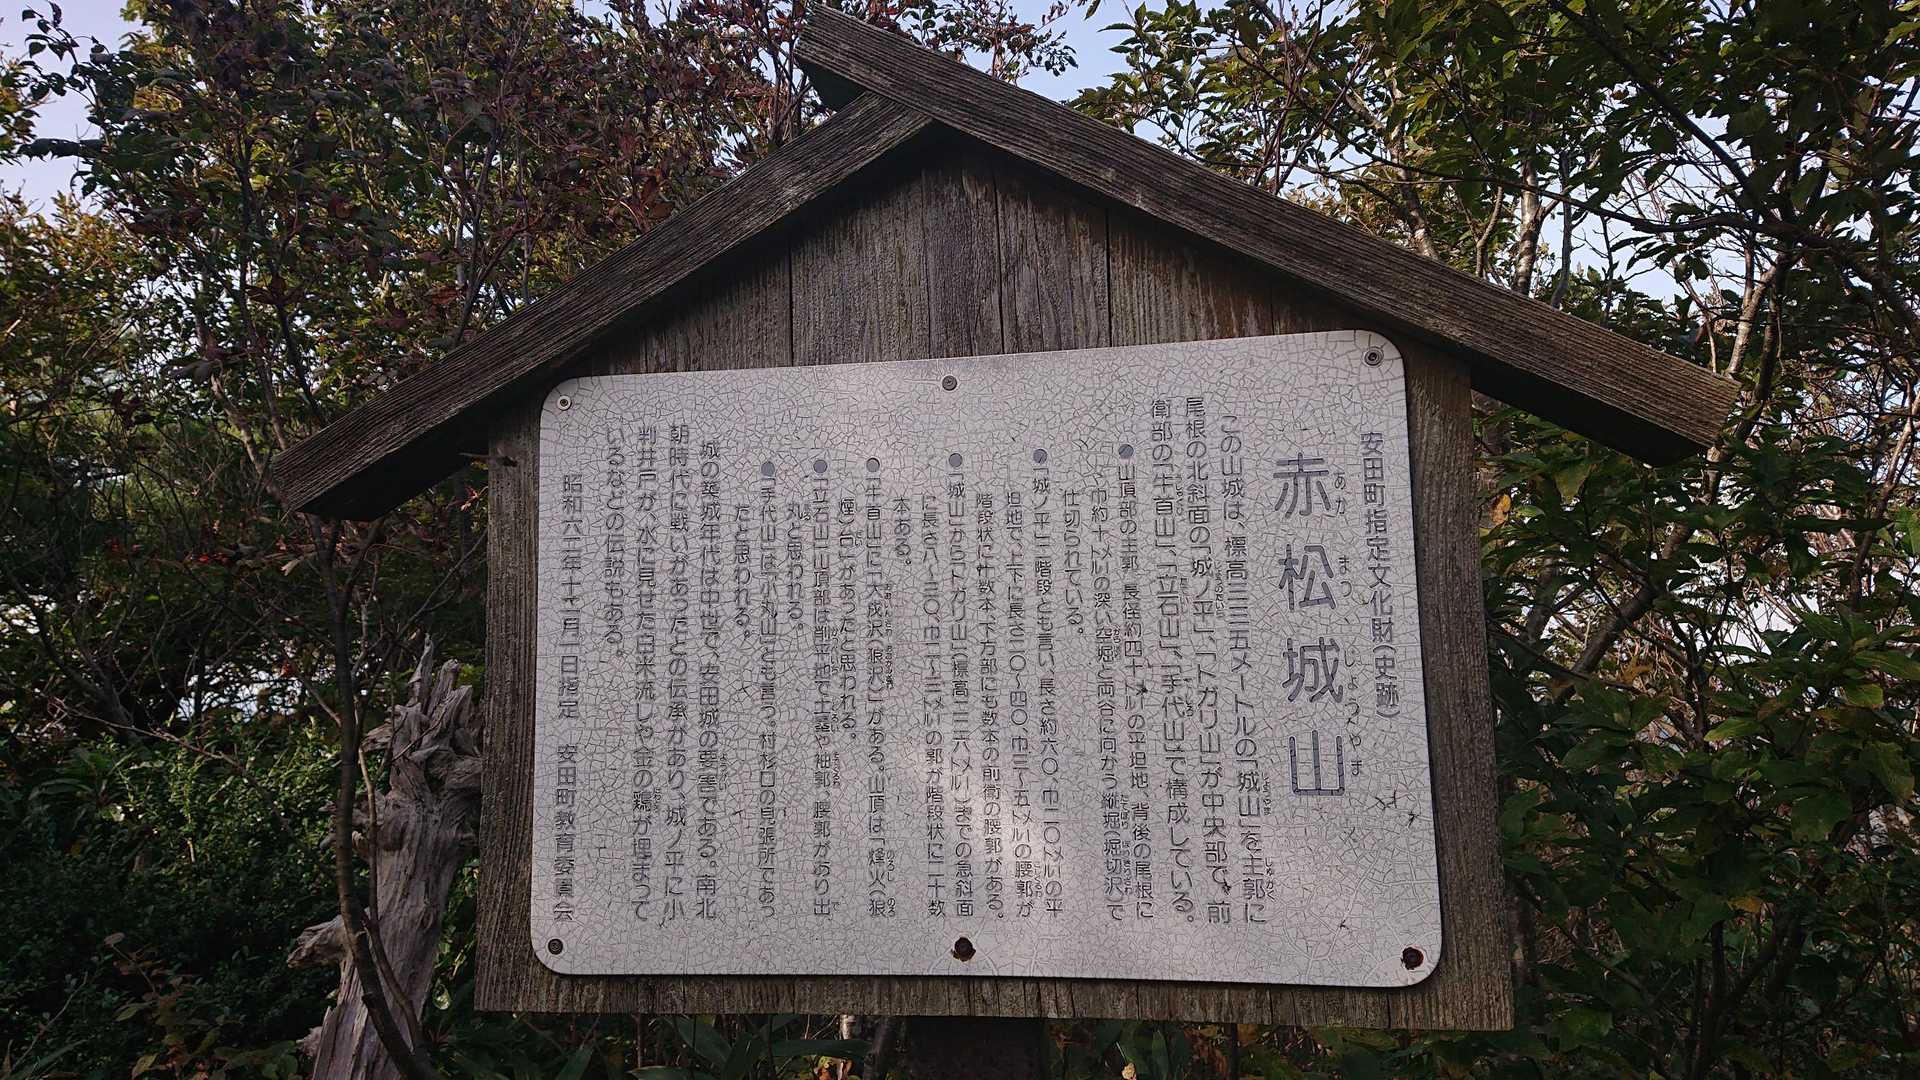 安田町指定文化財（史跡）
赤松城山
あか まつ じょう やま
この山城は、標高三三五メートルの「城山」を主郭に
尾根の北斜面の「城ノ平」、「トガリ山」が中央部で、前
衛部の「牛首山」、「立石山」、「手代山」で構成している。
●山頂部の主郭 長径約四十㍍の平坦地、背後の尾根に
巾約十㍍の深い空堀と両谷に向かう縦堀（堀切沢）で
仕切られている。
●「城ノ平」二階段とも言い、長さ約六〇、巾二〇㍍の平
坦地で、上下に長さ二〇～四〇、巾三～五㍍の腰郭が
階段状に十数本、下方部にも数本の前衛の腰郭がある。
●「城山」から「トガリ山（標高二二六㍍）」までの急斜面
に長さ八～三〇、巾二～三㍍の郭が階段状に二十数
本ある。
●「牛首山」に「大成沢、狼沢」がある。山頂は「烽火（狼
煙）台」があったと思われる。
●「立石山」山頂部は削平地で土塁や袖郭、腰郭があり出
丸と思われる。
●「手代山」は「小丸山」とも言う。村杉口の見張所であっ
たと思われる。
城の築城年代は中世で、安田城の要害である。南北
朝時代に戦いがあったとの伝承があり、城ノ平に小
判井戸が、水に見せた白米流しや金の鶏が埋まって
いるなどの伝説もある。
昭和六二年十二月一日指定 安田町教育委員会